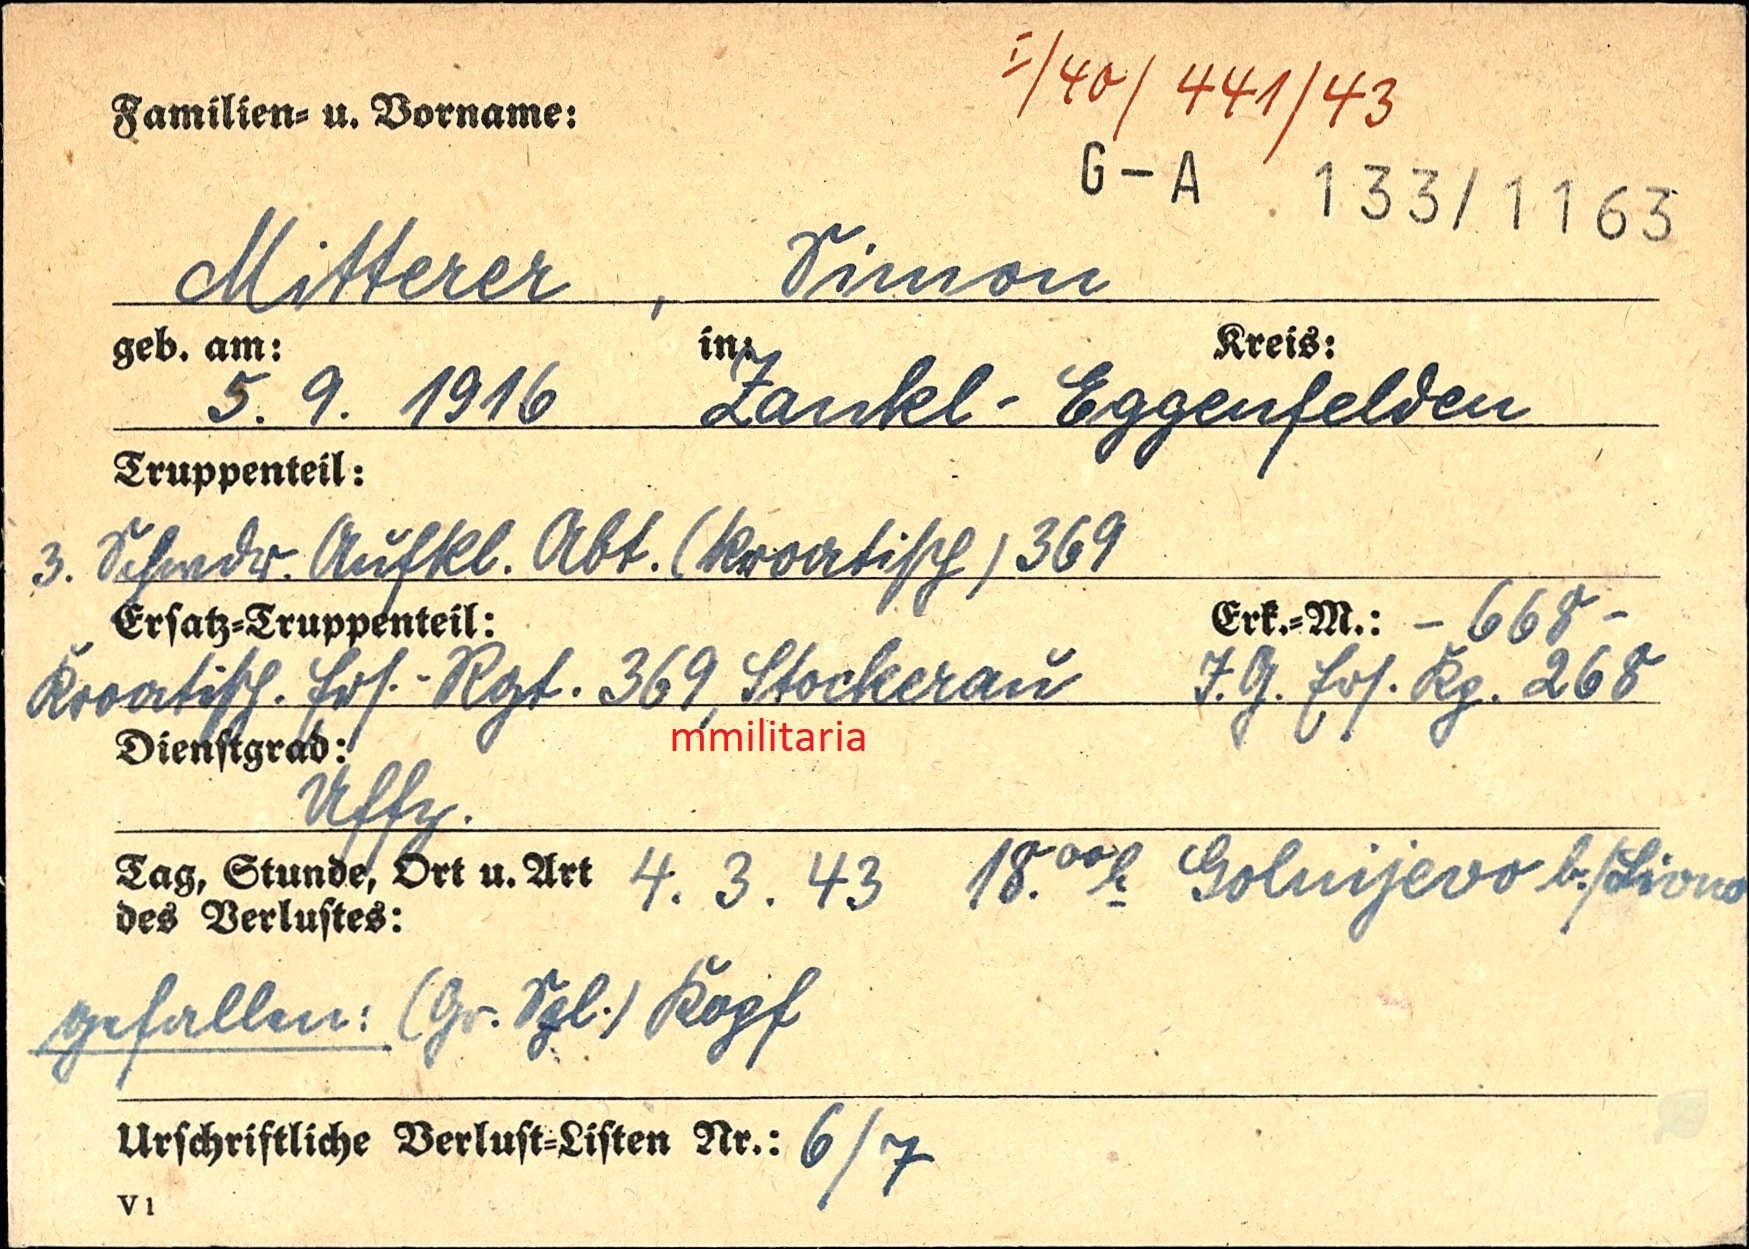 I/40/441/43
Familien- u. Vorname:
G-A 133/1163
Mitterer, Simon
geb. am: in: Kreis:
5. 9. 1916 Zankl - Eggenfelden
Truppenteil:
3. Schwdr. Aufkl. Abt. (kroatisch) 369
Ersatz-Truppenteil: Erk.-M.: - 668 -
Kroatisch. Ers.-Rgt. 369, Stockerau J.G. Ers. Kp. 268
mmilitaria
Dienstgrad:
Uffz.
Tag, Stunde, Ort u. Art 4. 3. 43 18.00 h Golnijevo b./Livno
des Verlustes:
gefallen: (Gr. Spl.) Kopf
Urschriftliche Verlust-Listen Nr.: 6/7
V 1